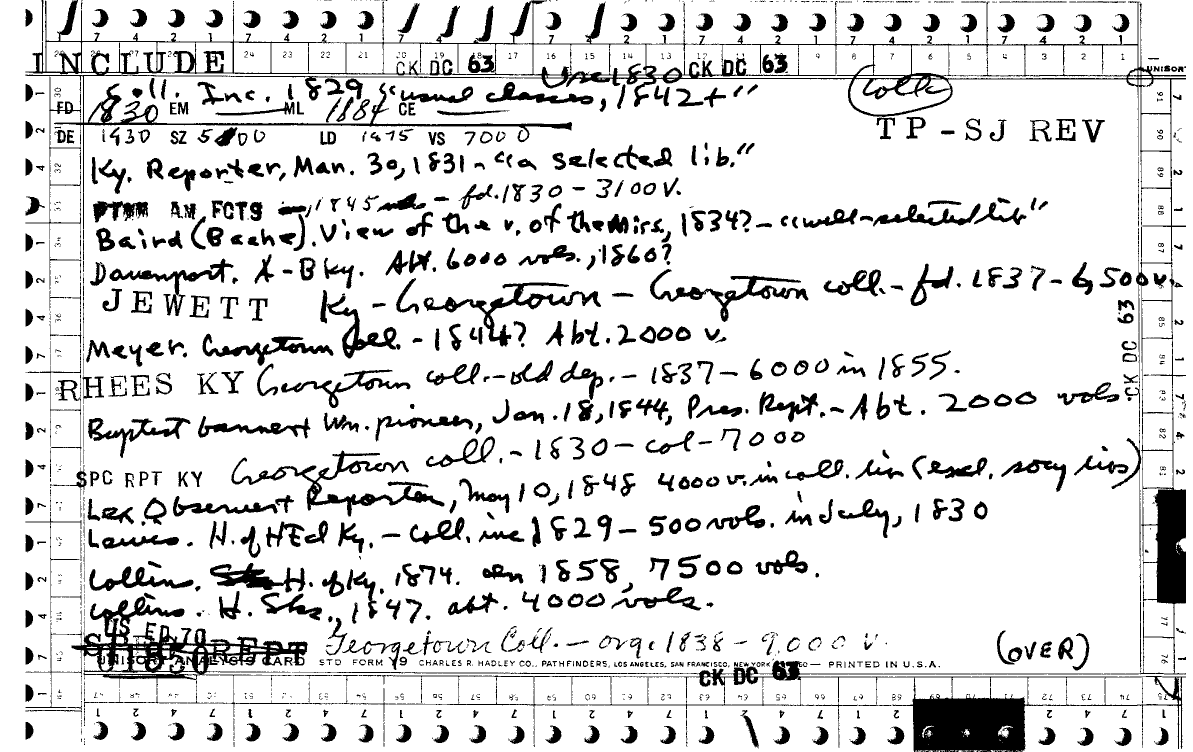 INCLUDE CK DC 63 Use 1830 CK DC 63
Coll. Inc. 1829 "usual classes, 1842+" Colls
FD 1830 EM — ML 1884 CE —
DE 1430 SZ LD 1475 VS 7000 TP-SJ REV
Ky. Reporter, Mar. 30, 1831 - "a selected lib."
AM FCTS 1845 - fd. 1830 - 3100 V.
Baird (Bache). View of the v. of the Miss, 1834? - "well-selected lib"
Davenport. A-B Ky. Abt. 6000 vols., 1860?
JEWETT Ky - Georgetown - Georgetown coll. - fd. 1837 - 6,500 v.
Meyer. Georgetown Coll. - 1844? Abt. 2000 v.
RHEES KY Georgetown coll. - old dep. - 1837 - 6000 in 1855.
Baptist banner & Wn. pioneer, Jan. 18, 1844, Pres. Rept. - Abt. 2000 vols.
SPC RPT KY Georgetown coll. - 1830 - col - 7000
Lex. Observer & Reporter, May 10, 1848 4000 v. in coll. lib (excl. socy libs)
Lewis. H. of H Ed Ky. - Coll. inc 1829 - 500 vols. in July, 1830
Collins. H. of Ky. 1874. In 1858, 7500 vols.
Collins. H. Sks., 1847. abt. 4000 vols.
US ED 70 Georgetown Coll. - org. 1838 - 9,000 v.
1850
(OVER)
UNISORT ANALYSIS CARD STD FORM Y9 CHARLES R. HADLEY CO., PATHFINDERS, LOS ANGELES, SAN FRANCISCO, NEW YORK — PRINTED IN U.S.A.
CK DC 63
CK DC 63
UNISORT